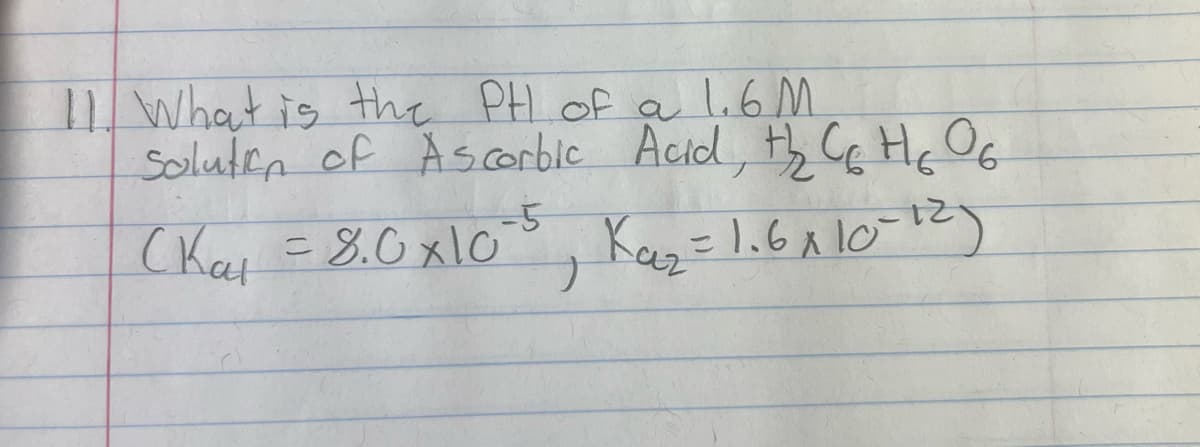 11. What is the PH of a 1.6 M
solution of Ascorbic Acid, H₂ C₆ H₆ O₆
(Ka₁ = 8.0 x 10⁻⁵, Ka₂ = 1.6 x 10⁻¹²)